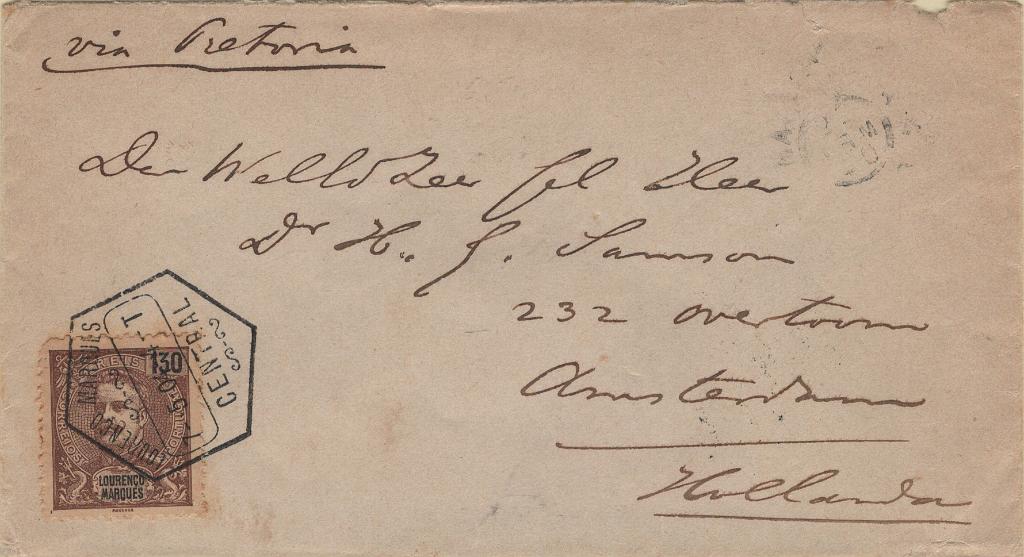 via Pretoria
Den Welld Zeer Gel Heer
Dr H. J. Samson
232 overtoom
Amsterdam
Hollanda
CORREIOS
REIS
130
LOURENÇO
MARQUES
LOURENÇO
MARQUES
CENTRAL